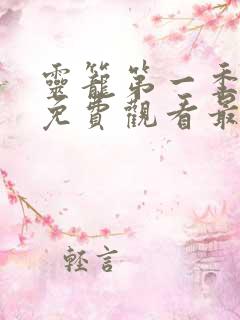 靈籠第一季
免費觀看最
輕言